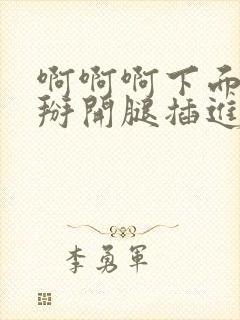 啊啊啊下面
掰開腿插進
李勇軍